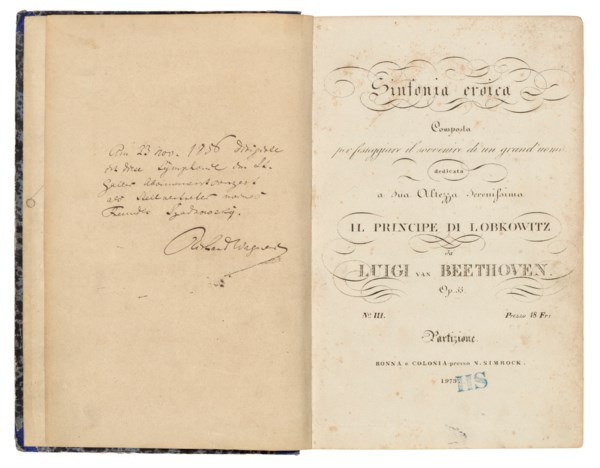 Am 23 Nov. 1856 dirigirte
ich diese Symphonie im St.
Galler Abonnementconzert
als Stellvertreter meines
Freundes Szadrowsky.
Richard Wagner
Sinfonia eroica
Composta
per festeggiare il sovvenire di un grand'uomo
dedicata
a Sua Altezza Serenissima
IL PRINCIPE DI LOBKOWITZ
da
LUIGI VAN BEETHOVEN.
Op. 55.
No. III. Prezzo 18 Fr.
Partizione.
BONNA e COLONIA presso N. SIMROCK.
1973
HS